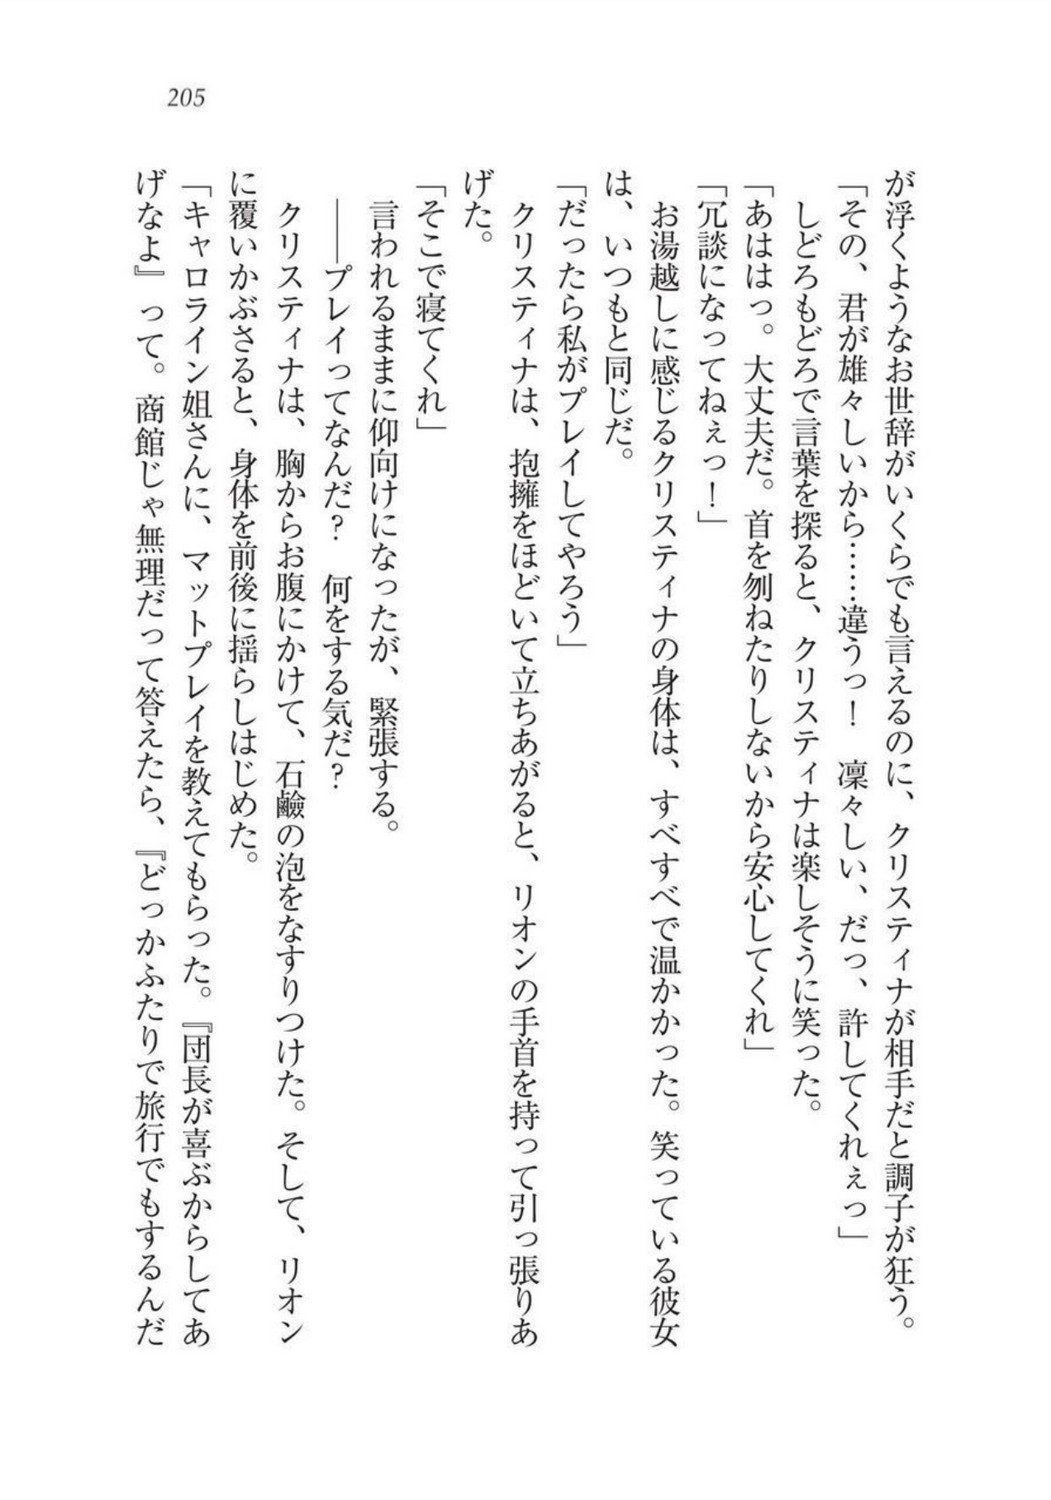 205
が浮くようなお世辞がいくらでも言えるのに、クリスティナが相手だと調子が狂う。
「その、君が雄々しいから……違うっ！　凜々しい、だっ、許してくれぇっ」
しどろもどろで言葉を探ると、クリスティナは楽しそうに笑った。
「あははっ。大丈夫だ。首を刎ねたりしないから安心してくれ」
「冗談になってねぇっ！」
お湯越しに感じるクリスティナの身体は、すべすべで温かかった。笑っている彼女
は、いつもと同じだ。
「だったら私がプレイしてやろう」
クリスティナは、抱擁をほどいて立ちあがると、リオンの手首を持って引っ張りあ
げた。
「そこで寝てくれ」
言われるままに仰向けになったが、緊張する。
――プレイってなんだ？　何をする気だ？
クリスティナは、胸からお腹にかけて、石鹼の泡をなすりつけた。そして、リオン
に覆いかぶさると、身体を前後に揺らしはじめた。
「キャロライン姐さんに、マットプレイを教えてもらった。『団長が喜ぶからしてあ
げなよ』って。商館じゃ無理だって答えたら、『どっかふたりで旅行でもするんだ